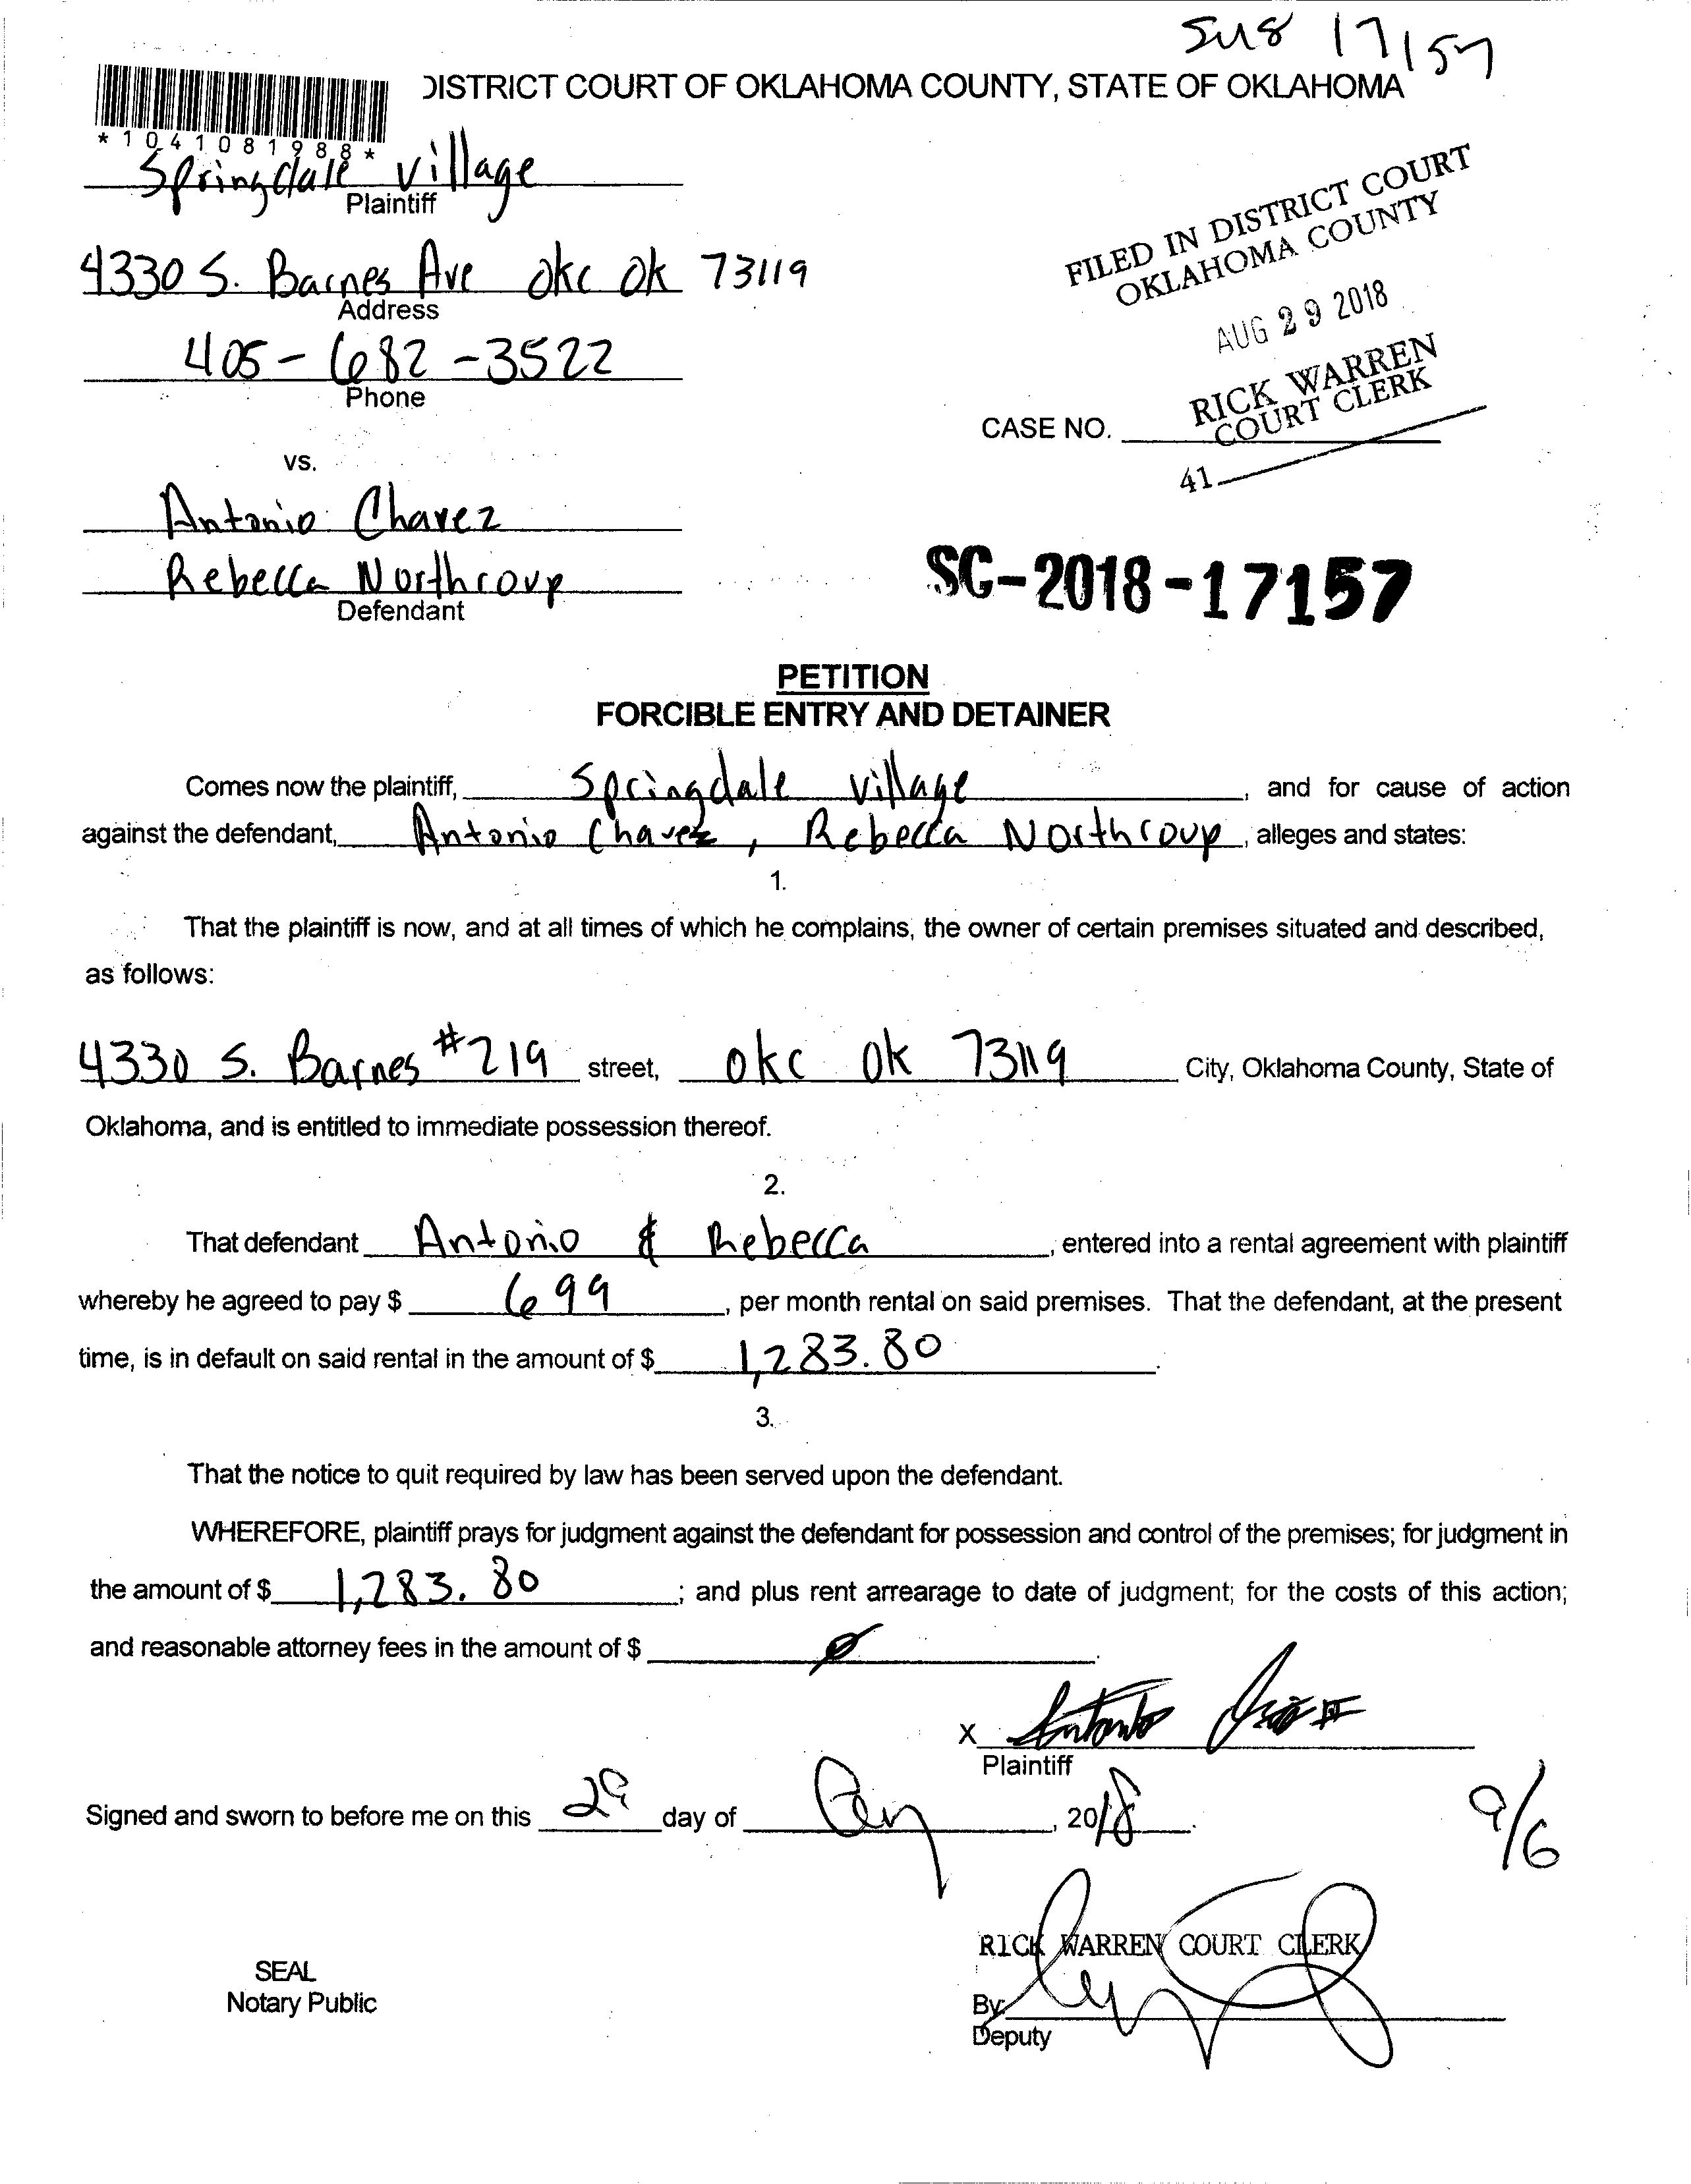 SM8 17157
DISTRICT COURT OF OKLAHOMA COUNTY, STATE OF OKLAHOMA
*1041081988*
Springdale Village
Plaintiff
4330 S. Barnes Ave okc ok 73119
Address
405-682-3522
Phone
FILED IN DISTRICT COURT
OKLAHOMA COUNTY
AUG 29 2018
RICK WARREN
COURT CLERK
CASE NO.
41
vs.
Antonio Chavez
Rebecca Northcoup
Defendant
SC-2018-17157
PETITION
FORCIBLE ENTRY AND DETAINER
Comes now the plaintiff, Springdale Village, and for cause of action
against the defendant, Antonio Chavez, Rebecca Northcoup, alleges and states:
1.
That the plaintiff is now, and at all times of which he complains, the owner of certain premises situated and described,
as follows:
4330 S. Barnes #219 street, okc ok 73119 City, Oklahoma County, State of
Oklahoma, and is entitled to immediate possession thereof.
2.
That defendant Antonio & Rebecca, entered into a rental agreement with plaintiff
whereby he agreed to pay $ 699, per month rental on said premises. That the defendant, at the present
time, is in default on said rental in the amount of $ 1,283.80.
3.
That the notice to quit required by law has been served upon the defendant.
WHEREFORE, plaintiff prays for judgment against the defendant for possession and control of the premises; for judgment in
the amount of $ 1,283.80; and plus rent arrearage to date of judgment; for the costs of this action;
and reasonable attorney fees in the amount of $ ø.
X Antonio
Plaintiff
Signed and sworn to before me on this 29 day of Aug, 2018.
9/6
RICK WARREN COURT CLERK
SEAL
Notary Public
By:
Deputy